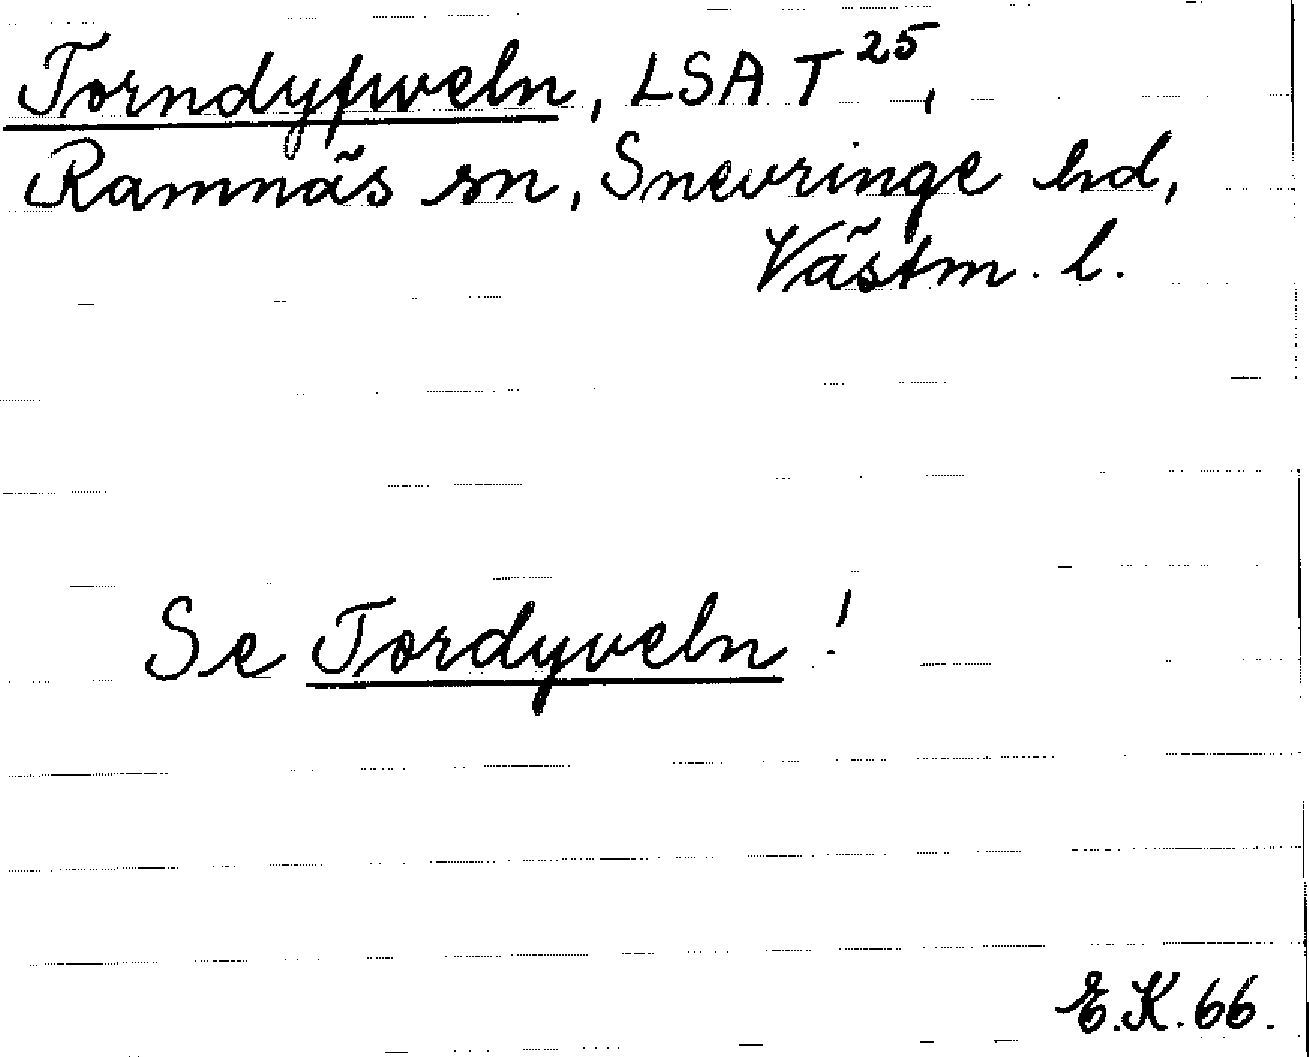 Torndyfweln, LSA T 25,
Ramnäs sn, Snevringe hd,
Västm. l.
Se Tordyveln!
E.K.66.